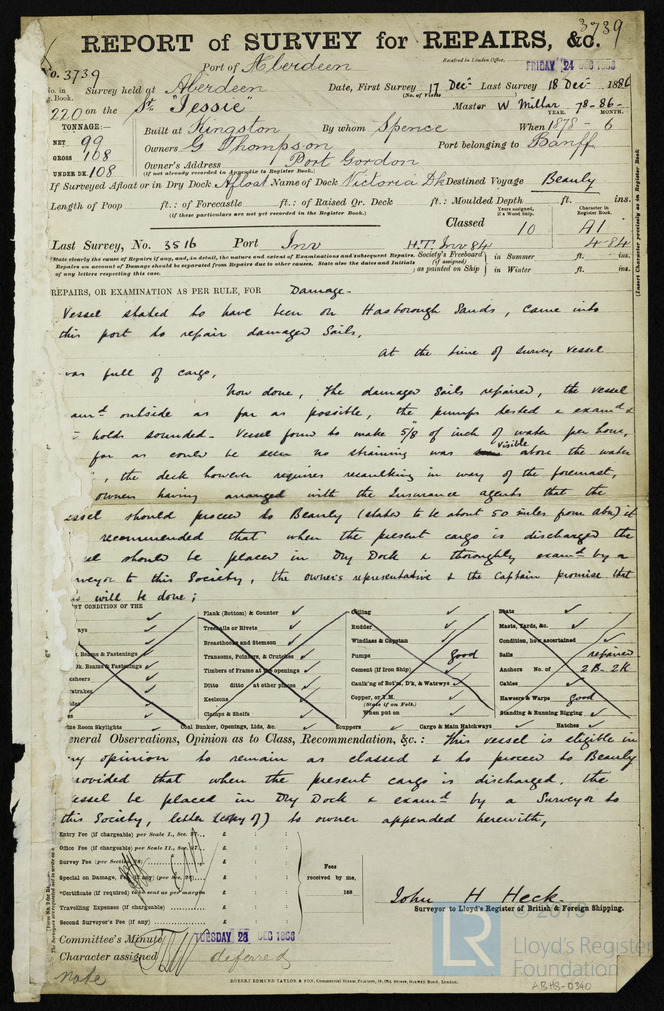 3739
REPORT of SURVEY for REPAIRS, &c.
Port of Aberdeen
Received in London Office,
FRIDAY 24 DEC 1886
No. 3739
No. in Reg. Book.
Survey held at Aberdeen Date, First Survey 17 Decr Last Survey 18 Decr 1886
(No. of Visits
220 on the Sr "Jessie" Master W Millar 78-86-
TONNAGE:—
YEAR. MONTH.
Built at Kingston By whom Spence When 1878-6
NET 99
GROSS 108
UNDER DK 108
Owners G Thompson Port belonging to Banff
Owner's Address Port Gordon
(If not already recorded in Appendix to Register Book.)
If Surveyed Afloat or in Dry Dock Afloat Name of Dock Victoria Dk Destined Voyage Beauly
Length of Poop ft. : of Forecastle ft. : of Raised Qr. Deck ft. : Moulded Depth ft. ins.
(if these particulars are not yet recorded in the Register Book.)
Years assigned, if a Wood Ship.
Character in Register Book.
Classed 10 A1
Last Survey, No. 3516 Port Inv H.T. Inv 84 4-84
(State clearly the cause of Repairs if any, and, in detail, the nature and extent of Examinations and subsequent Repairs.
Repairs on account of Damage should be separated from Repairs due to other causes. State also the dates and Initials
of any letters respecting this case.
Society's Freeboard (if assigned) as painted on Ship
in Summer ft. ins.
in Winter ft. ins.
(Insert Character precisely as in Register Book
REPAIRS, OR EXAMINATION AS PER RULE, FOR Damage-
Vessel stated to have been on Hasborough Sands, came into
this port to repair damaged Sails,
At the time of survey vessel
was full of cargo,
Now done, The damaged Sails repaired, the vessel
outside as far as possible, the pumps tested & examd &
holds sounded - Vessel found to make 5/8 of inch of water per hour,
far as could be seen no straining was visible above the water
, the deck however requires recaulking in way of the foremast,
owners having arranged with the Insurance agents that the
essel should proceed to Beauly (stated to be about 50 miles from Abn) it
recommended that when the present cargo is discharged the
el should be placed in Dry Dock & thoroughly examd by a
rveyor to this Society, the owner's representative & the Captain promise that
will be done;
ST CONDITION OF THE
Plank (Bottom) & Counter
Ceiling
Boats
ays
Treenails or Rivets
Rudder
Masts, Yards, &c.
Breasthooks and Stemson
Windlass & Capstan
Condition, how ascertained
Beams & Fastenings
Transoms, Pointers, & Crutches
Pumps good
Sails repaired
Dk. Beams & Fastenings
Timbers of Frame at the openings
Cement (if Iron Ship)
Anchors No. of 2B-2K
Ditto ditto at other places
Caulk'g of Bot'm, D'k, & Waterw'ys
Cables
Keelsons
Copper, or Y.M.
(State if on Felt.)
Hawsers & Warps good
Clamps & Shelfs
When put on
Standing & Running Rigging
ne Room Skylights Coal Bunker, Openings, Lids, &c. Scuppers Cargo & Main Hatchways Hatches
eneral Observations, Opinion as to Class, Recommendation, &c.: This vessel is eligible in
my opinion to remain as classed & to proceed to Beauly
rovided that when the present cargo is discharged, the
essel be placed in Dry Dock & examd by a Surveyor to
this Society, letter (copy of) to owner appended herewith,
Entry Fee (if chargeable) per Scale I., Sec. 27... £ : :
Office Fee (if chargeable) per Scale II., Sec. 27... £ : :
Survey Fee (per Section 28) £ : :
Special on Damage, Fee (if any) (per Sec. 28) £ : :
*Certificate (if required) to be sent as per margin £ : :
Travelling Expenses (if chargeable) £ : :
Second Surveyor's Fee (if any) £ : :
Fees received by me,
188
John H Heck
Surveyor to Lloyd's Register of British & Foreign Shipping.
Committee's Minute TUESDAY 28 DEC 1886
Character assigned deferred
note
ROBERT EDMUND TAYLOR & SON, Commercial Steam Printers, 19, Old Street, Goswell Road, London.
LR
© 2019
Lloyd's Register
Foundation
ABHS-0340